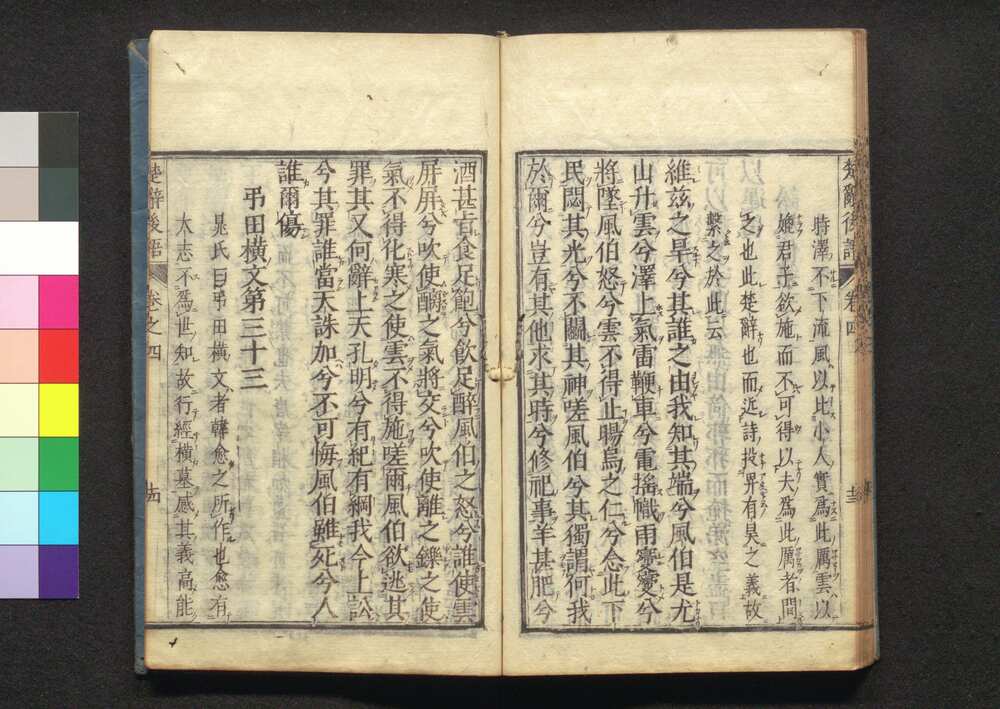 楚辭後語 卷四
時澤不下流風以比小人實爲此厲雲以
媲君子欲施而不可得以夫爲此厲者間
之也此楚辭也而近詩投畀有昊之義故
繫之於此云
維茲之旱兮其誰之由我知其端兮風伯是尤
山升雲兮澤上氣雷鞭車兮電搖幟雨寖寖兮
將墜風伯怒兮雲不得止暘烏之仁兮念此下
民閟其光兮不鬭其神嗟風伯兮其獨謂何我
於爾兮豈有其他求其時兮修祀事羊甚肥兮
酒甚旨食足飽兮飲足醉風伯之怒兮誰使雲
屏屏兮吹使醨之氣將交兮吹使離之鑠之使
氣不得化寒之使雲不得施嗟爾風伯欲逃其
罪其又何辭上天孔明兮有紀有綱我今上訟
兮其罪誰當天誅加兮不可悔風伯雖死兮人
誰爾傷
弔田橫文第三十三
晁氏曰弔田橫文者韓愈之所作也愈有
大志不爲世知故行經橫墓感其義高能
楚辭後語 卷之四